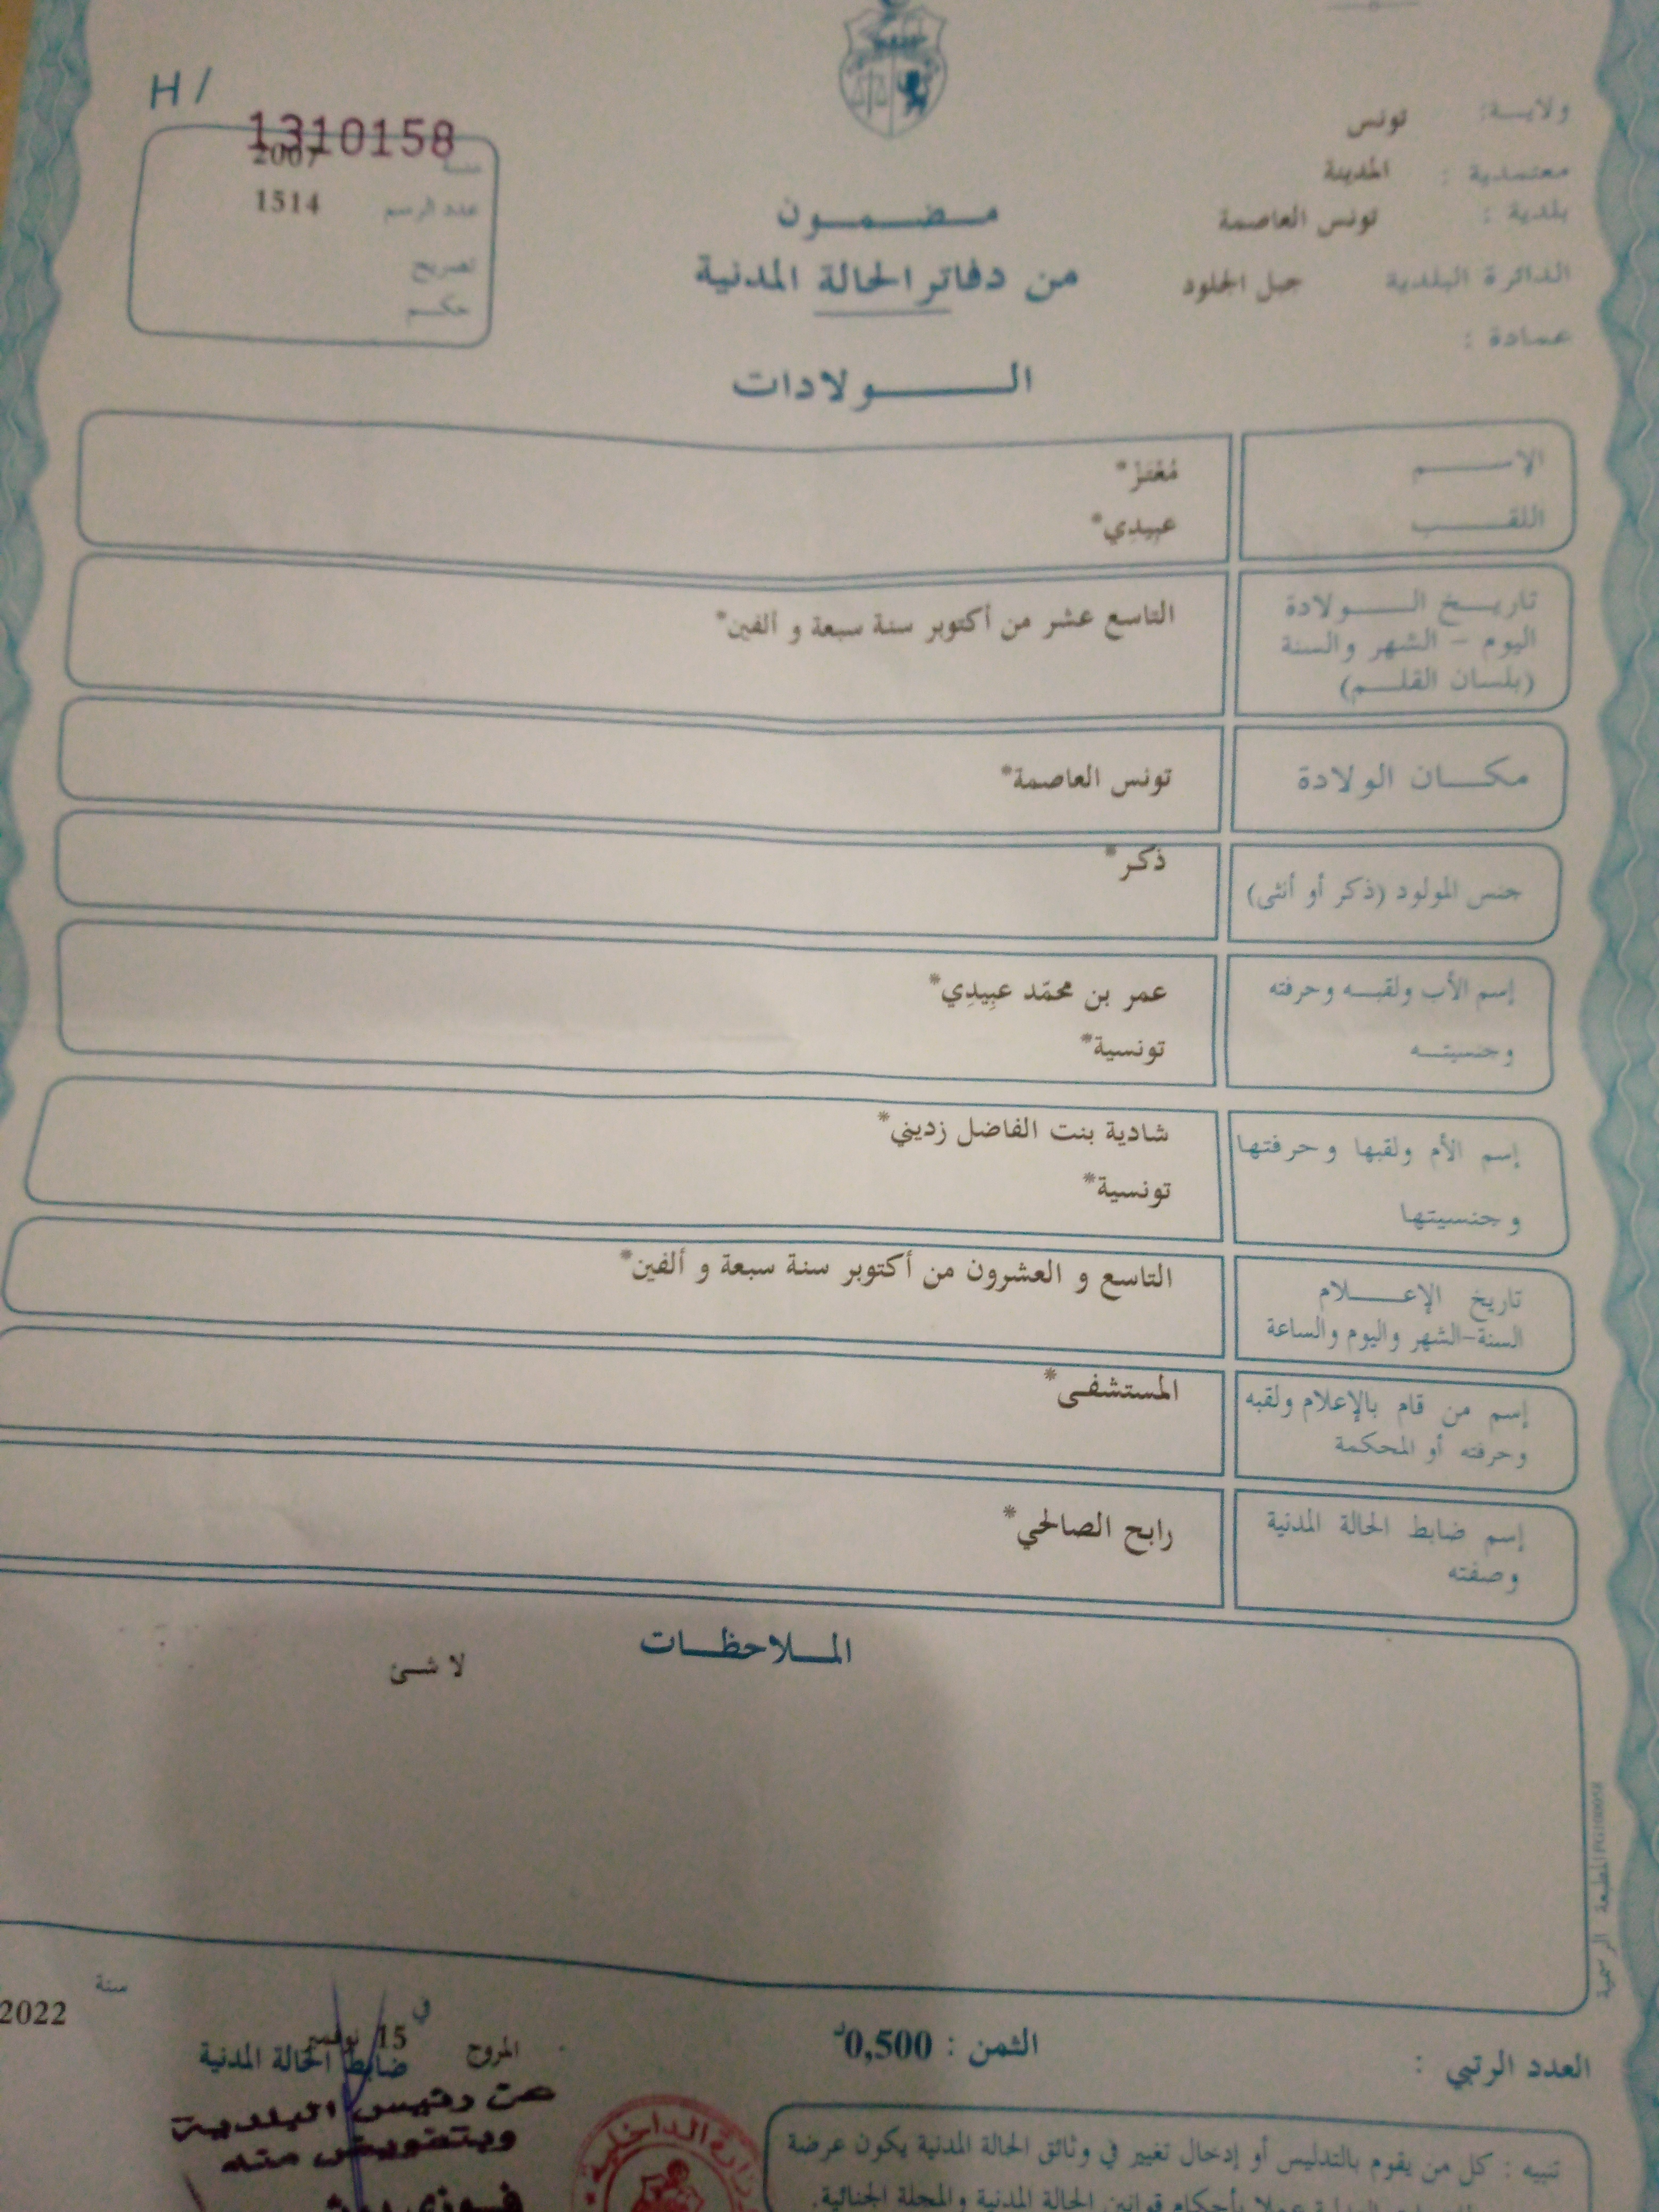 H /
1310158
ولايـــة: تونس
سنة 2007
معتمدية : المدينة
عدد الرسم 1514
مـــضـــمـــون
بلدية : تونس العاصمة
من دفاتر الحالة المدنية
الدائرة البلدية جبل الجلود
تصريح
حكـــم
عمادة :
الـــــــولادات
الإســـــــم مُعْتَزْ*
اللقـــــــب عبِيدِي*
تاريـــخ الـــــولادة التاسع عشر من أكتوبر سنة سبعة و ألفين*
اليوم – الشهر والسنة
(بلسان القلـــم)
مكـــان الولادة تونس العاصمة*
جنس المولود (ذكر أو أنثى) ذكر*
إسم الأب ولقبـــه وحرفته عمر بن محمّد عبِيدِي*
وجنسيتـــه تونسية*
إسم الأم ولقبها وحرفتها شادية بنت الفاضل زديني*
وجنسيتها تونسية*
تاريخ الإعـــــلام التاسع و العشرون من أكتوبر سنة سبعة و ألفين*
السنة-الشهر واليوم والساعة
إسم من قام بالإعلام ولقبه المستشفى*
وحرفته أو المحكمة
إسم ضابط الحالة المدنية رابح الصالحي*
وصفته
المـــلاحظـــات
لا شـــئ
المطبعة الرسمية
في سنة 2022
المروج 15 نوفمبر
ضابط الحالة المدنية
الثمن : 0,500د
العدد الرتبي :
عن رئيس البلدية
وبتفويض منه
فـــوزي
وزارة الداخلية
تنبيه : كل من يقوم بالتدليس أو إدخال تغيير في وثائق الحالة المدنية يكون عرضة
عملا بأحكام قوانين الحالة المدنية والمجلة الجنائية.